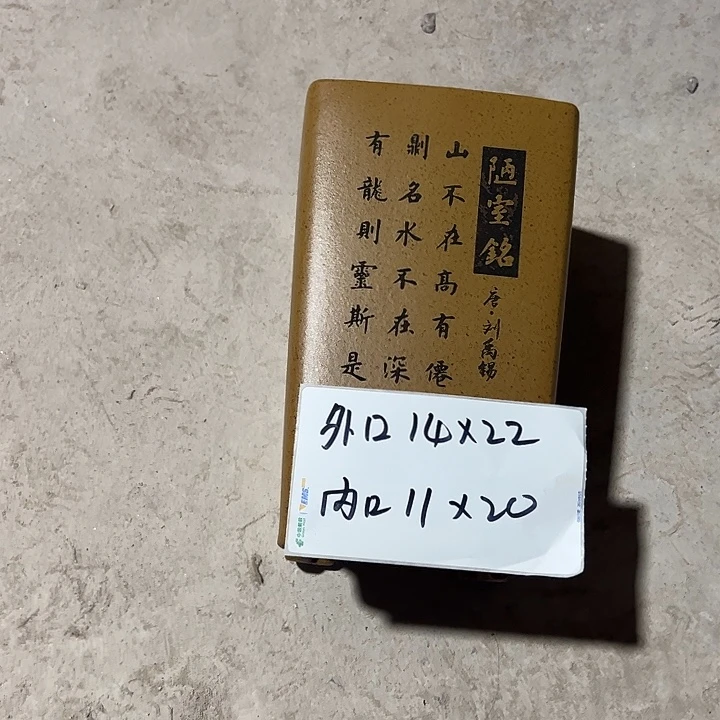 陋室銘
唐·刘禹錫
山不在高有僊
則名水不在深
有龍則靈斯是
外口14×22
内口11×20